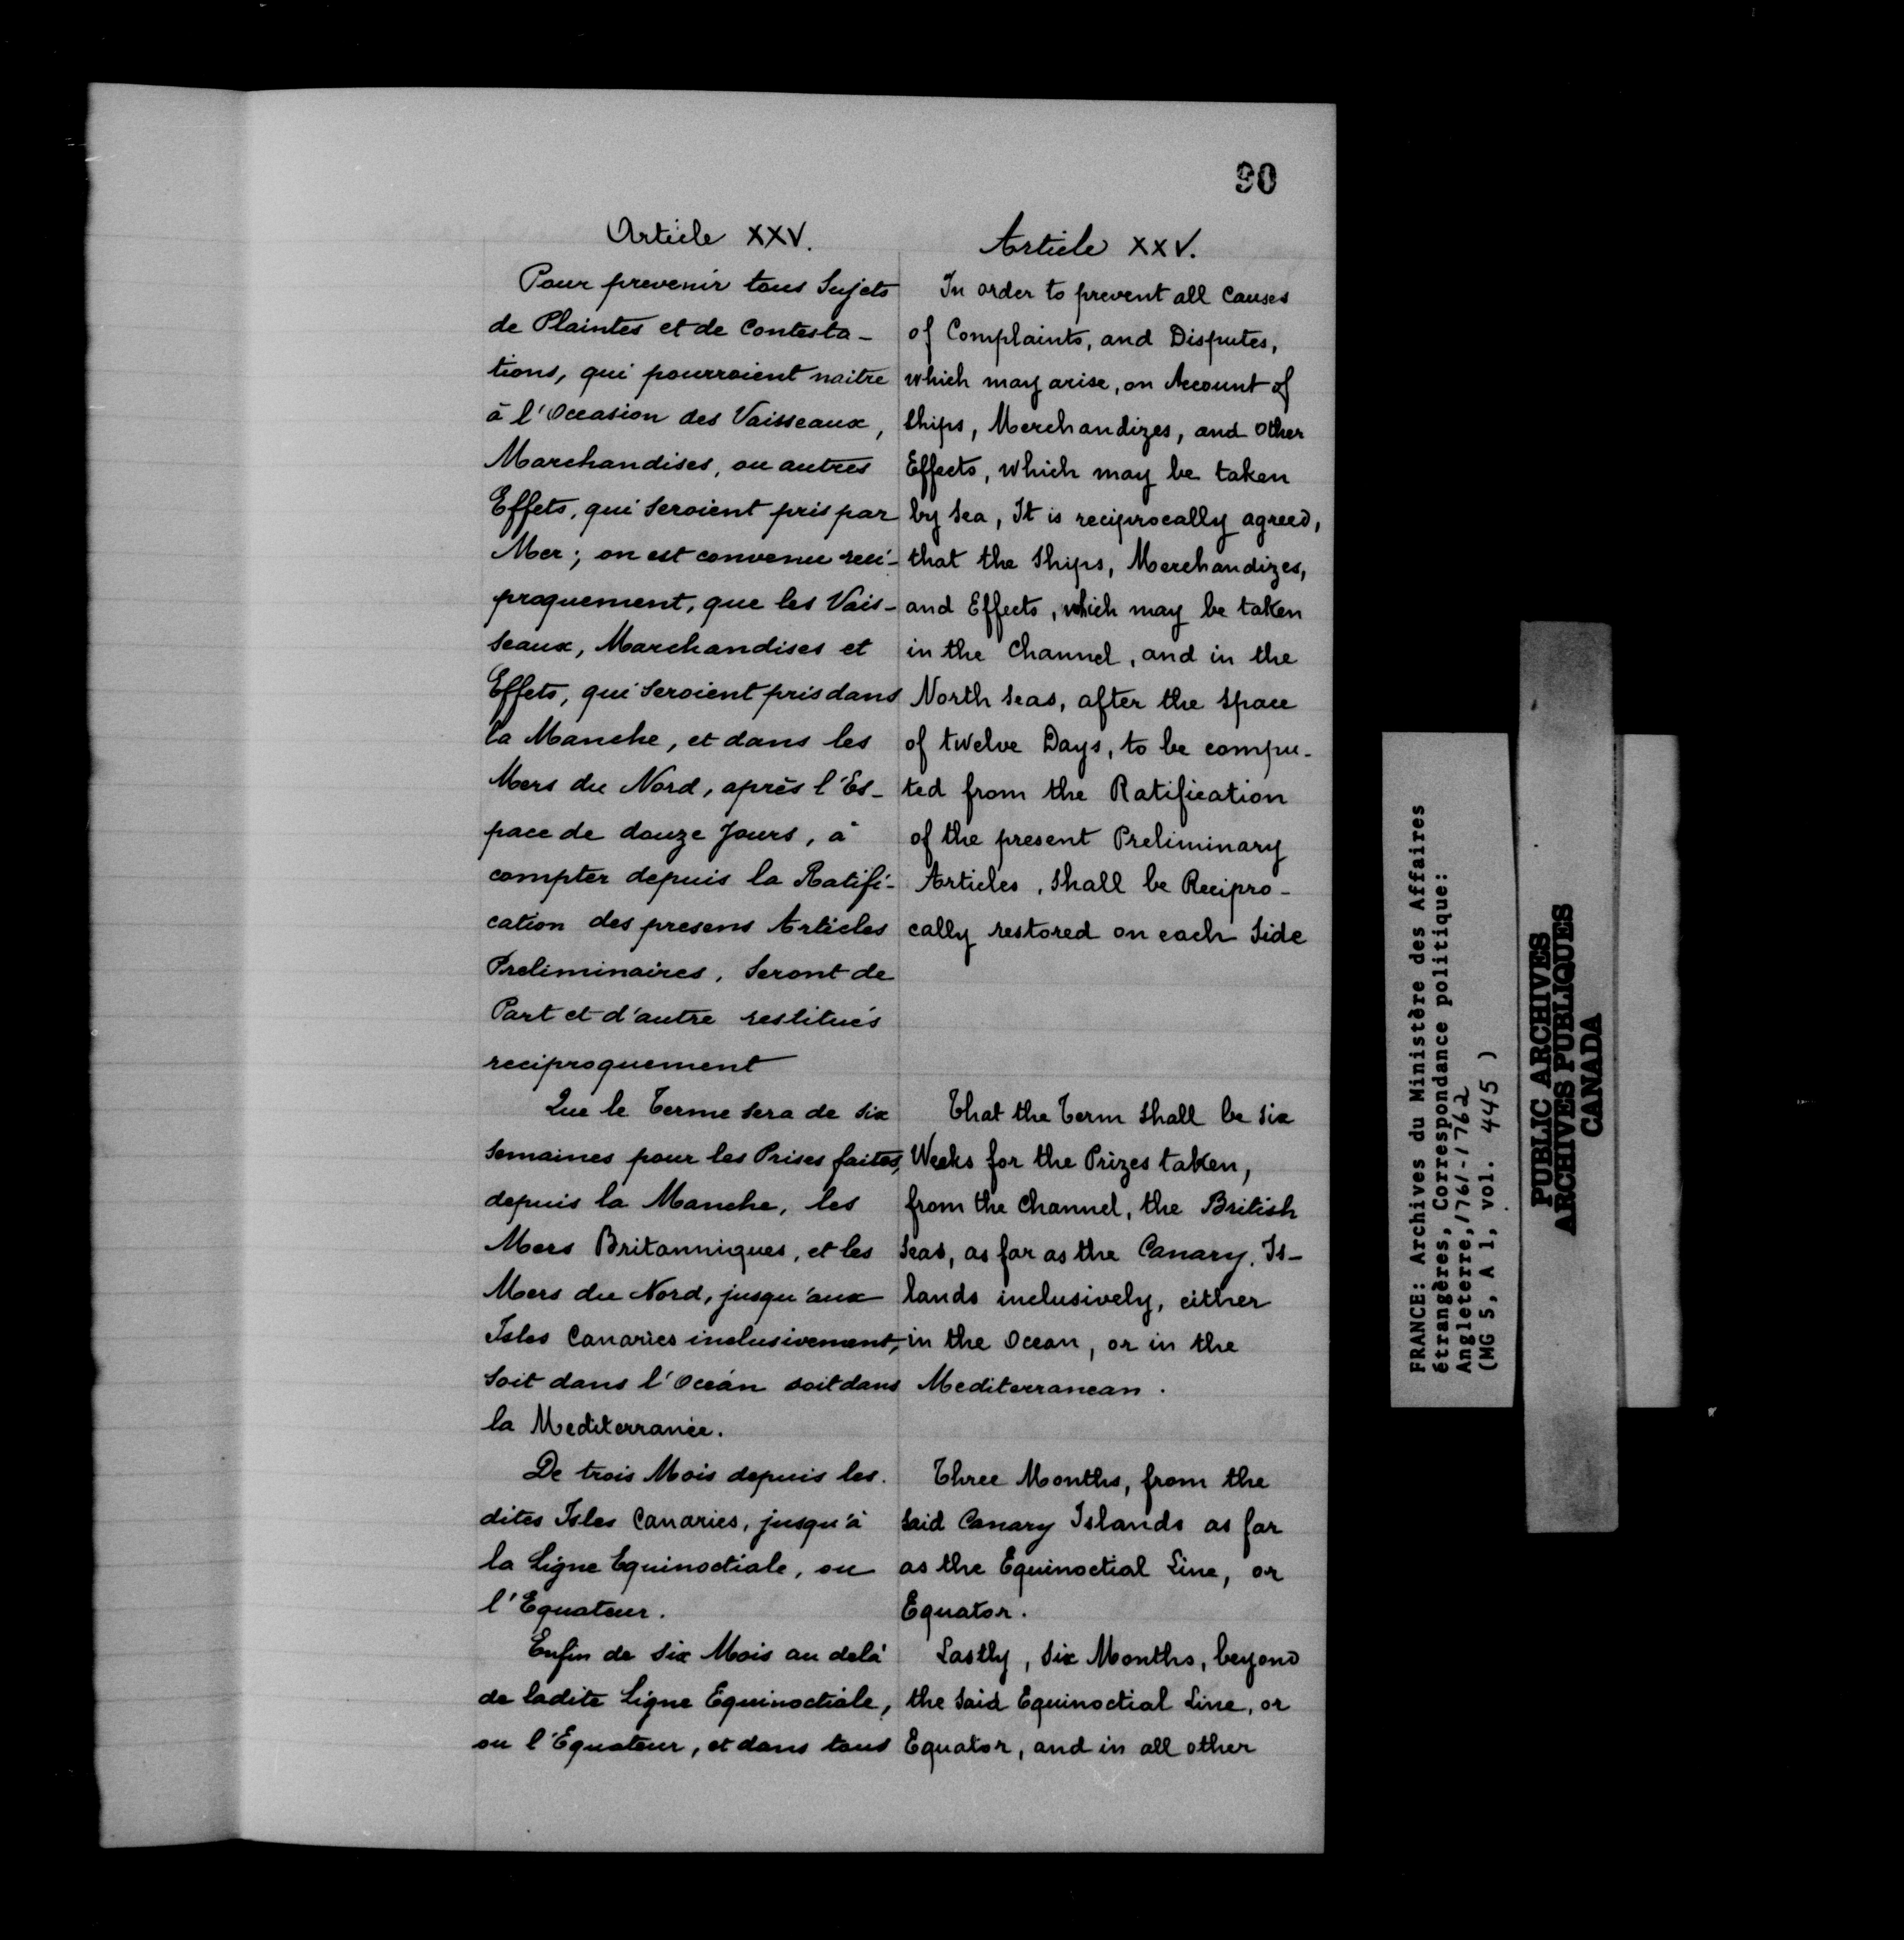 90
Article XXV.
Pour prevenir tous Sujets
de Plaintes et de Contesta-
tions, qui pourroient naitre
à l'Occasion des Vaisseaux,
Marchandises, ou autres
Effets, qui Seroient pris par
Mer; on est convenu reci-
proquement, que les Vais-
seaux, Marchandises et
Effets, qui Seroient pris dans
la Manche, et dans les
Mers du Nord, après l'Es-
pace de douze Jours, à
compter depuis la Ratifi-
cation des presens Articles
Preliminaires, Seront de
Part et d'autre restitués
reciproquement
Que le Terme sera de Six
Semaines pour les Prises faites,
depuis la Manche, les
Mers Britanniques, et les
Mers du Nord, jusqu'aux
Isles Canaries inclusivement,
Soit dans l'Océan soit dans
la Mediterranée.
De trois Mois depuis les.
dites Isles Canaries, jusqu'à
la Ligne Equinoctiale, ou
l'Equateur.
Enfin de Six Mois au delà
de ladite Ligne Equinoctiale,
ou l'Equateur, et dans tous
Article XXV.
In order to prevent all Causes
of Complaints, and Disputes,
which may arise, on Account of
Ships, Merchandizes, and Other
Effects, which may be taken
by Sea, It is reciprocally agreed,
that the Ships, Merchandizes,
and Effects, which may be taken
in the Channel, and in the
North Seas, after the Space
of twelve Days, to be compu-
ted from the Ratification
of the present Preliminary
Articles, Shall be Recipro-
cally restored on each Side
That the Term Shall be Six
Weeks for the Prizes taken,
from the Channel, the British
Seas, as far as the Canary, Is-
lands inclusively, either
in the Ocean, or in the
Mediterranean.
Three Months, from the
Said Canary Islands as far
as the Equinoctial Line, or
Equator.
Lastly, Six Months, beyond
the Said Equinoctial Line, or
Equator, and in all other
FRANCE: Archives du Ministère des Affaires
étrangères, Correspondance politique:
Angleterre, 1761-1762
(MG 5, A 1, vol. 445 )
PUBLIC ARCHIVES
ARCHIVES PUBLIQUES
CANADA